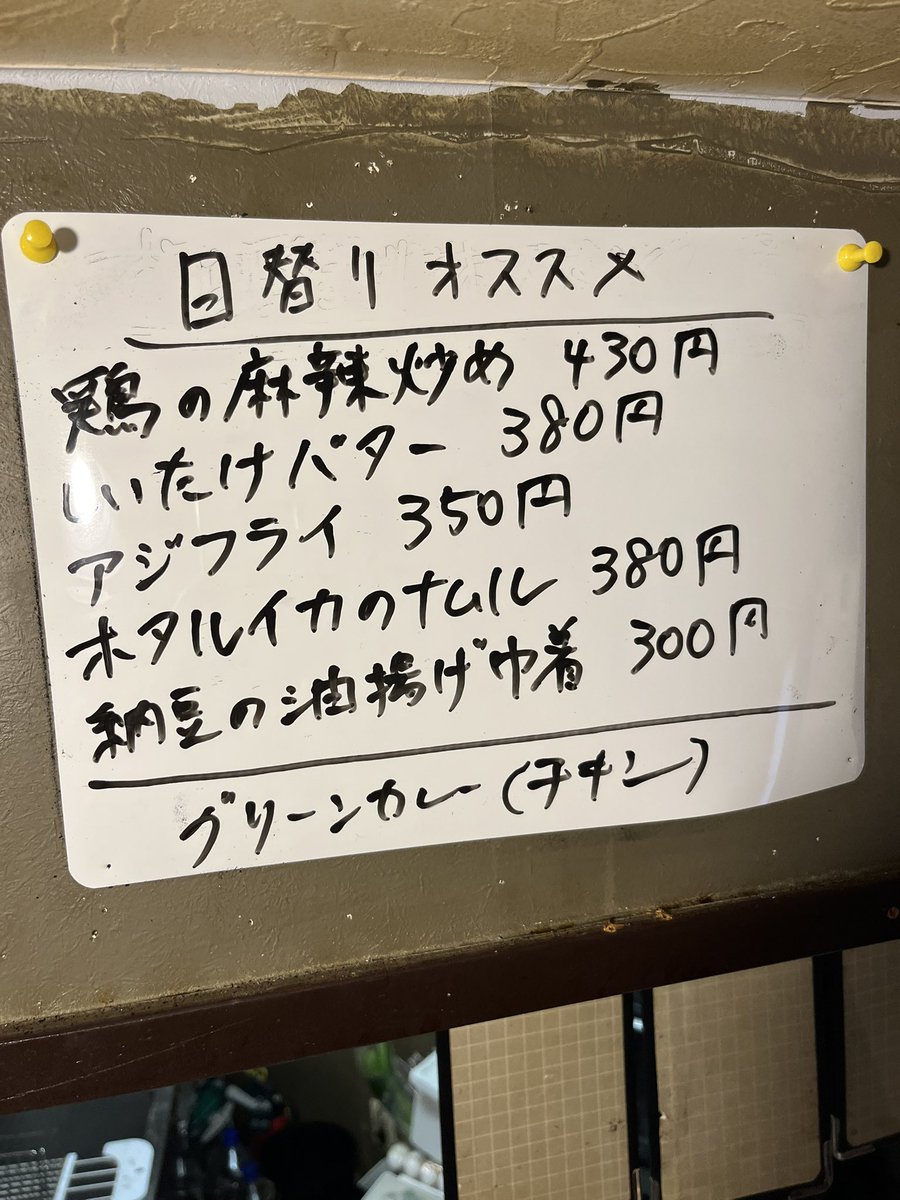 日替りオススメ
鶏の麻辣炒め 430円
しいたけバター 380円
アジフライ 350円
ホタルイカのナムル 380円
納豆の油揚げ巾着 300円
グリーンカレー(チキン)